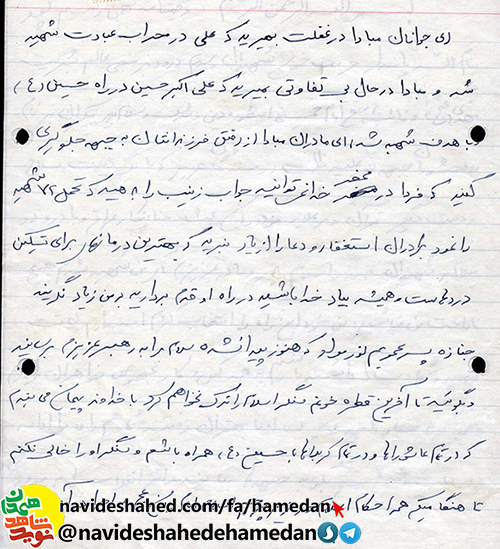 ای جوانان مبادا در غفلت بمیرید که علی در محراب عبادت شهید
شد و مبادا در حال بی تفاوتی بمیرید که علی اکبر حسین در راه حسین (ع)
با هدف شهید شد، ای مادران مبادا از رفتن فرزندانتان به جبهه جلوگیری
کنید که فردا در محضر خدا نمی توانید جواب زینب را بدهید که تحمل ۷۲ شهید
را نمود برادران استغفار و دعا را از یاد نبرید که بهترین درمانها برای تسکین
دردهاست و همیشه بیاد خدا باشید در راه او قدم بردارید برمن زیاد گریه نکنید
جنازه پسر عمویم که هنوز پیدا نشده سلام مرا به رهبر عزیزم برسانید
و بگوئید تا آخرین قطره خونم سنگر اسلام را ترک نخواهم کرد با خداوند پیمان می بندم
که در تمام عاشوراها و در تمام کربلاها با حسین (ع) همراه باشم و سنگر او را خالی نکنم
تا هنگامیکه همه احکام
navideshahed.com/fa/hamedan
@navideshahedehamedan
نوید شاهد همدان